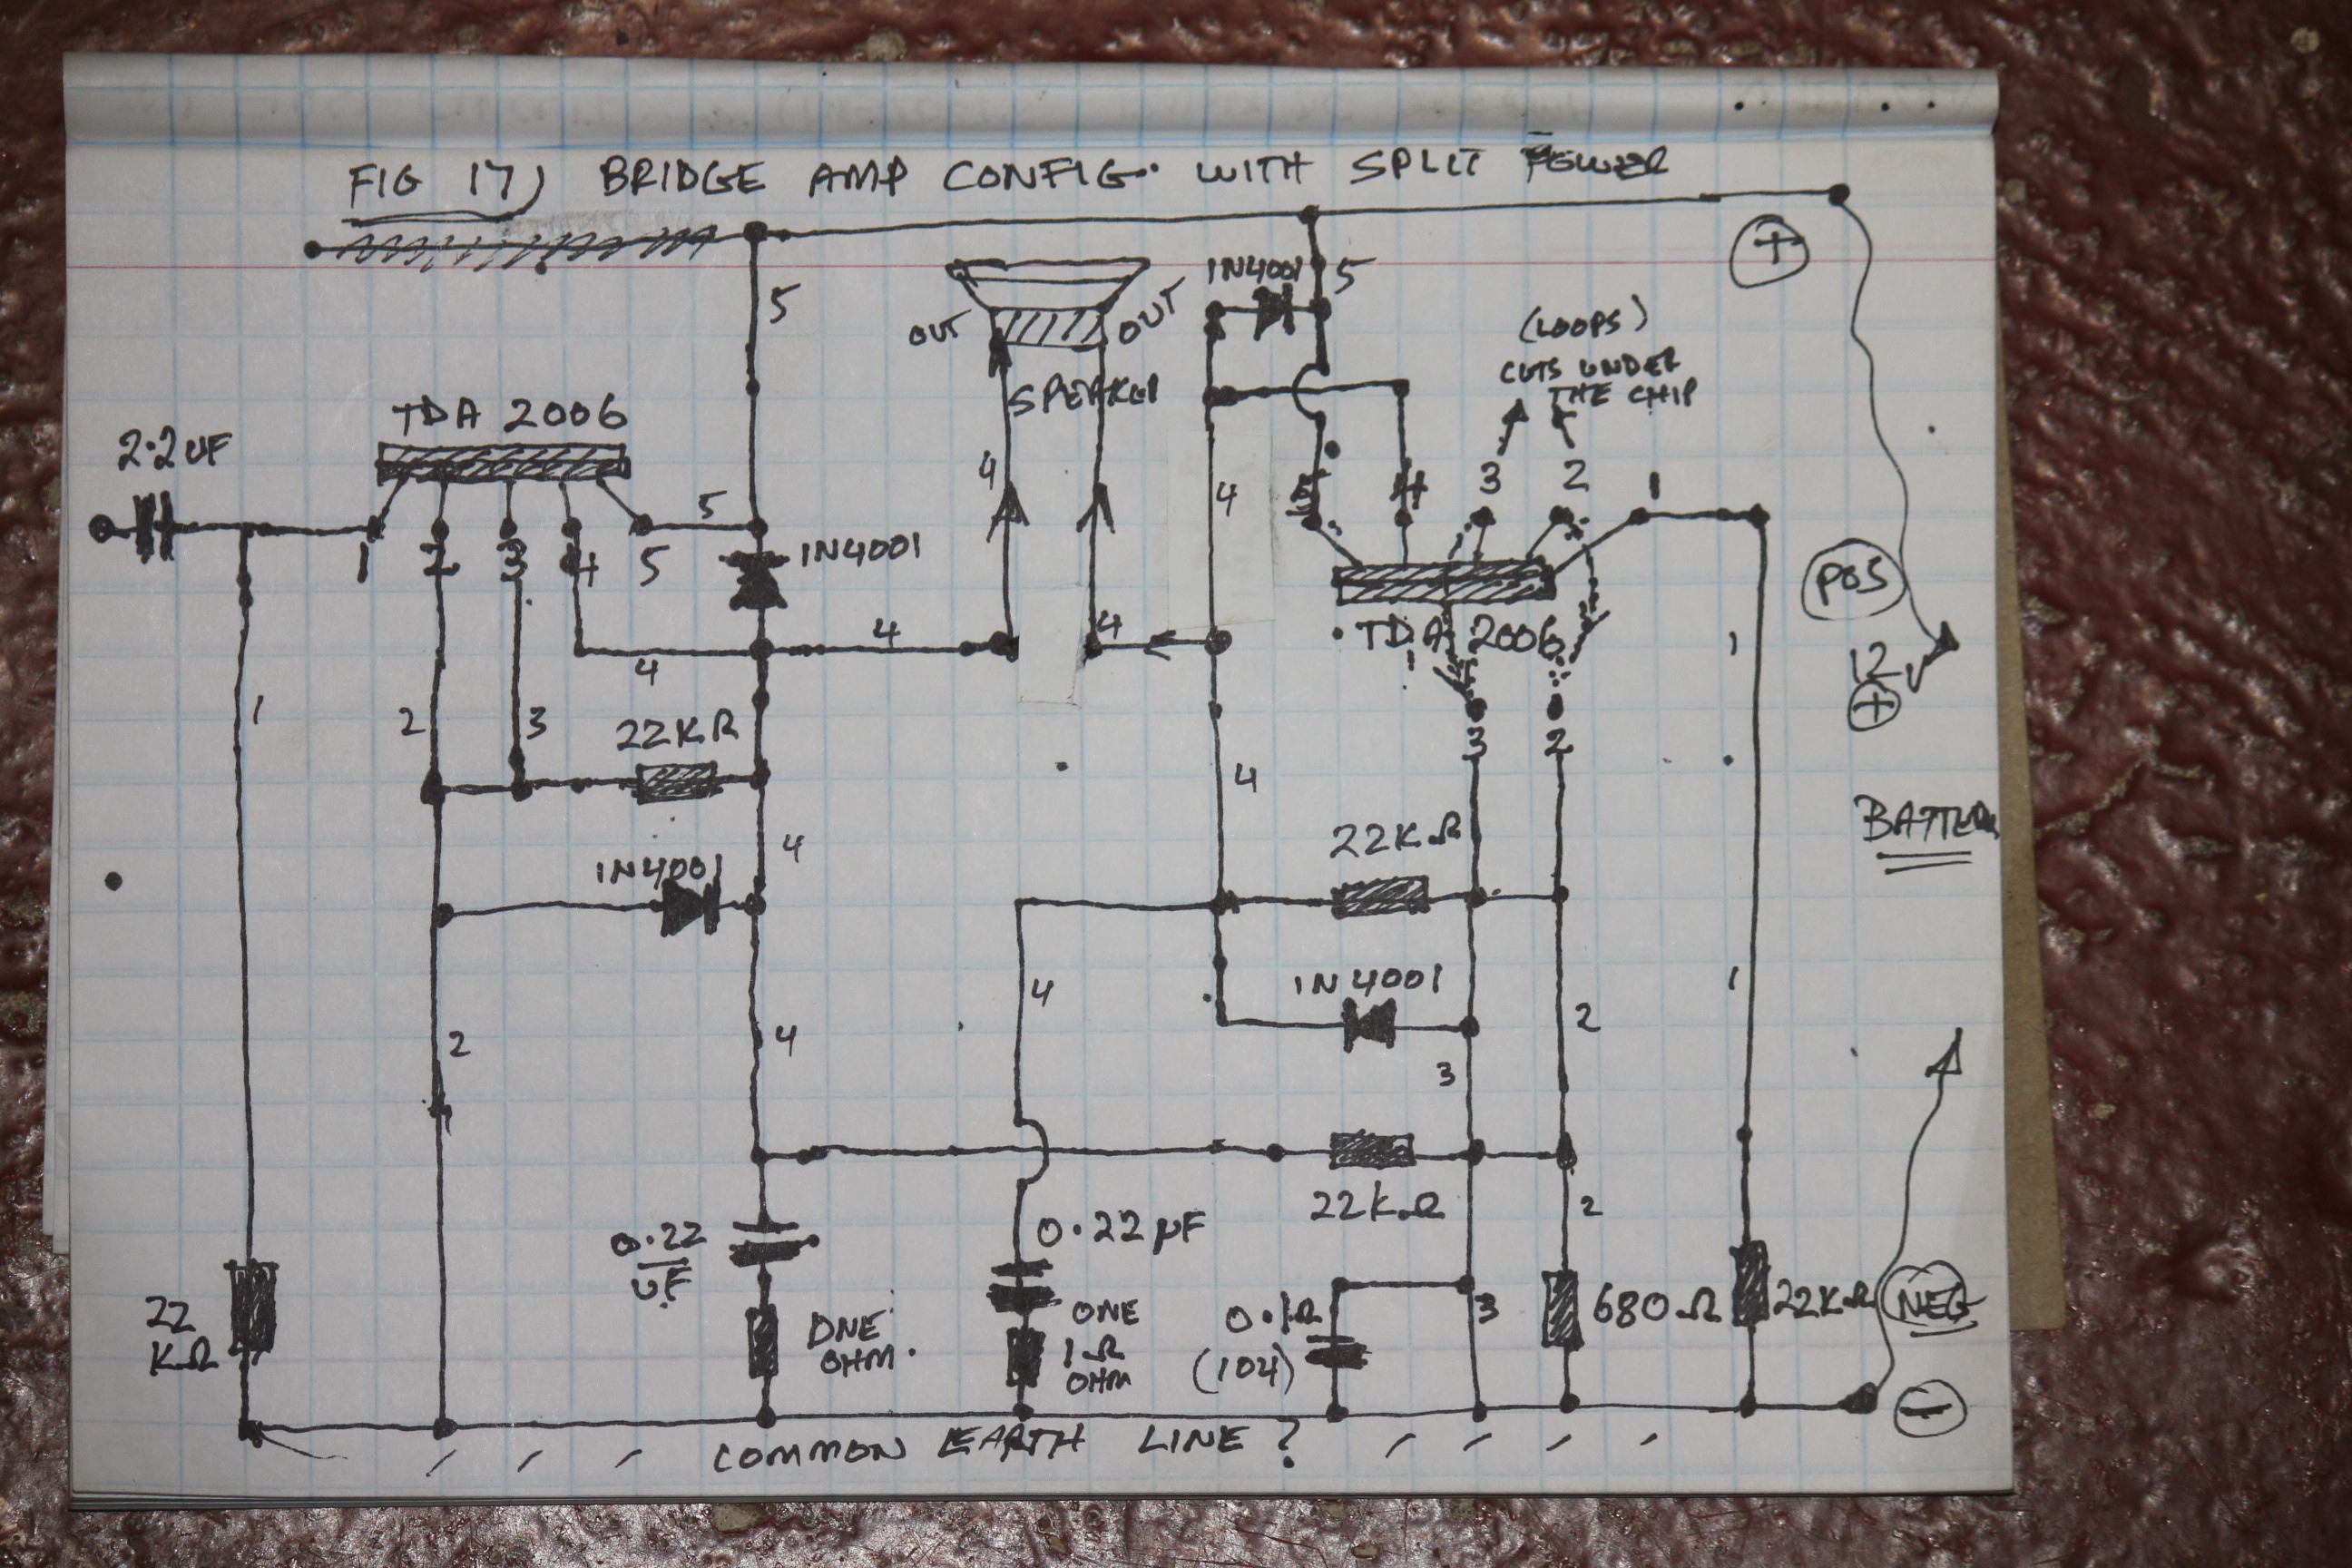 FIG 17) BRIDGE AMP CONFIG. WITH SPLIT POWER
+
5
1N4001
5
OUT
OUT
SPEAKER
(LOOPS)
CUTS UNDER
THE CHIP
TDA 2006
2.2UF
5
1 2 3 4 5
1N4001
4
4
4
5 4 3 2 1
TDA 2006
POS
12V
+
BATTERY
1
2
3
4
4
22KΩ
3 2
1
4
22KΩ
1N4001
4
1N4001
4
2
4
3
2
1
22KΩ
2
0.22
UF
0.22µF
ONE
OHM.
ONE
1Ω
OHM
0.1Ω
(104)
3
680Ω
22KΩ
NEG
22
KΩ
−
COMMON EARTH LINE?